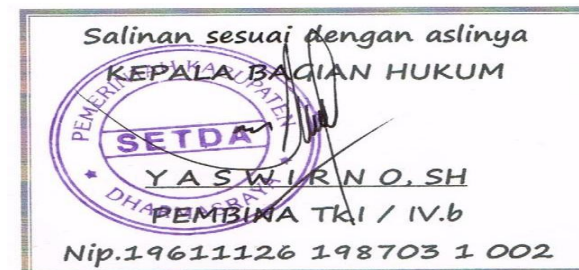 Salinan sesuai dengan aslinya
KEPALA BAGIAN HUKUM
PEMERINTAH KABUPATEN
SETDA
DHARMASRAYA
Y A S W I R N O, SH
PEMBINA TK.I / IV.b
Nip.19611126 198703 1 002